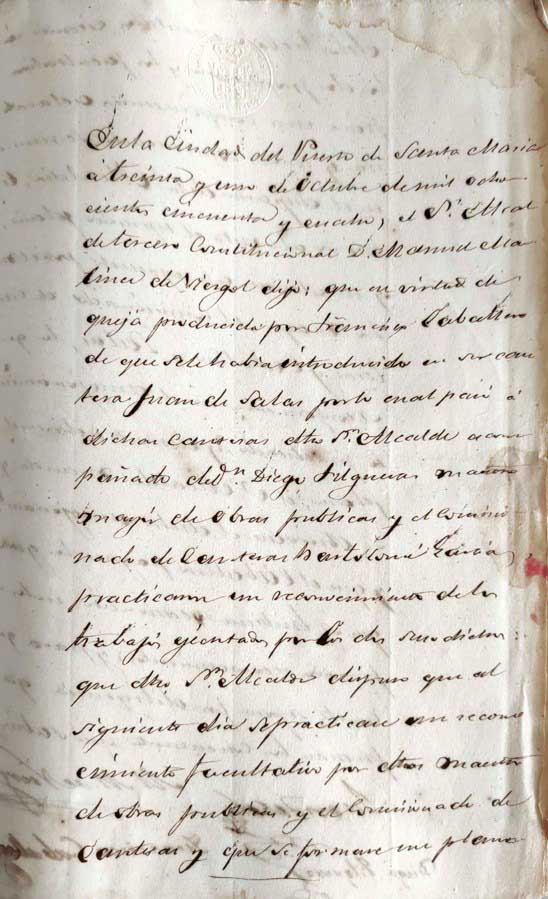 En la Ciudad del Puerto de Santa Maria
á treinta y uno de Octubre de mil ocho
cientos cincuenta y cuatro, el Sr. Alcal
de tercero Constitucional D. Manuel Ma
tinez de Viergol dijo; que en virtud de
queja producida por Francisco Caballero
de que se le habia introducido en su can
tera Juan de Salas por lo cual pasó á
dichas canteras dho Sr. Alcalde acom
pañado de Dn. Diego Filgueras maestro
mayor de obras publicas y el comisio
nado de Canteras Bartolomé Garcia,
practicaron un reconocimiento de los
trabajos ejecutados por los dos susodichos:
que dho Sr. Alcalde dispuso que al
siguiente dia se practicase un recono
cimiento facultativo por dhos maestro
de obras publicas y el Comisionado de
Canteras y que se formase un plano